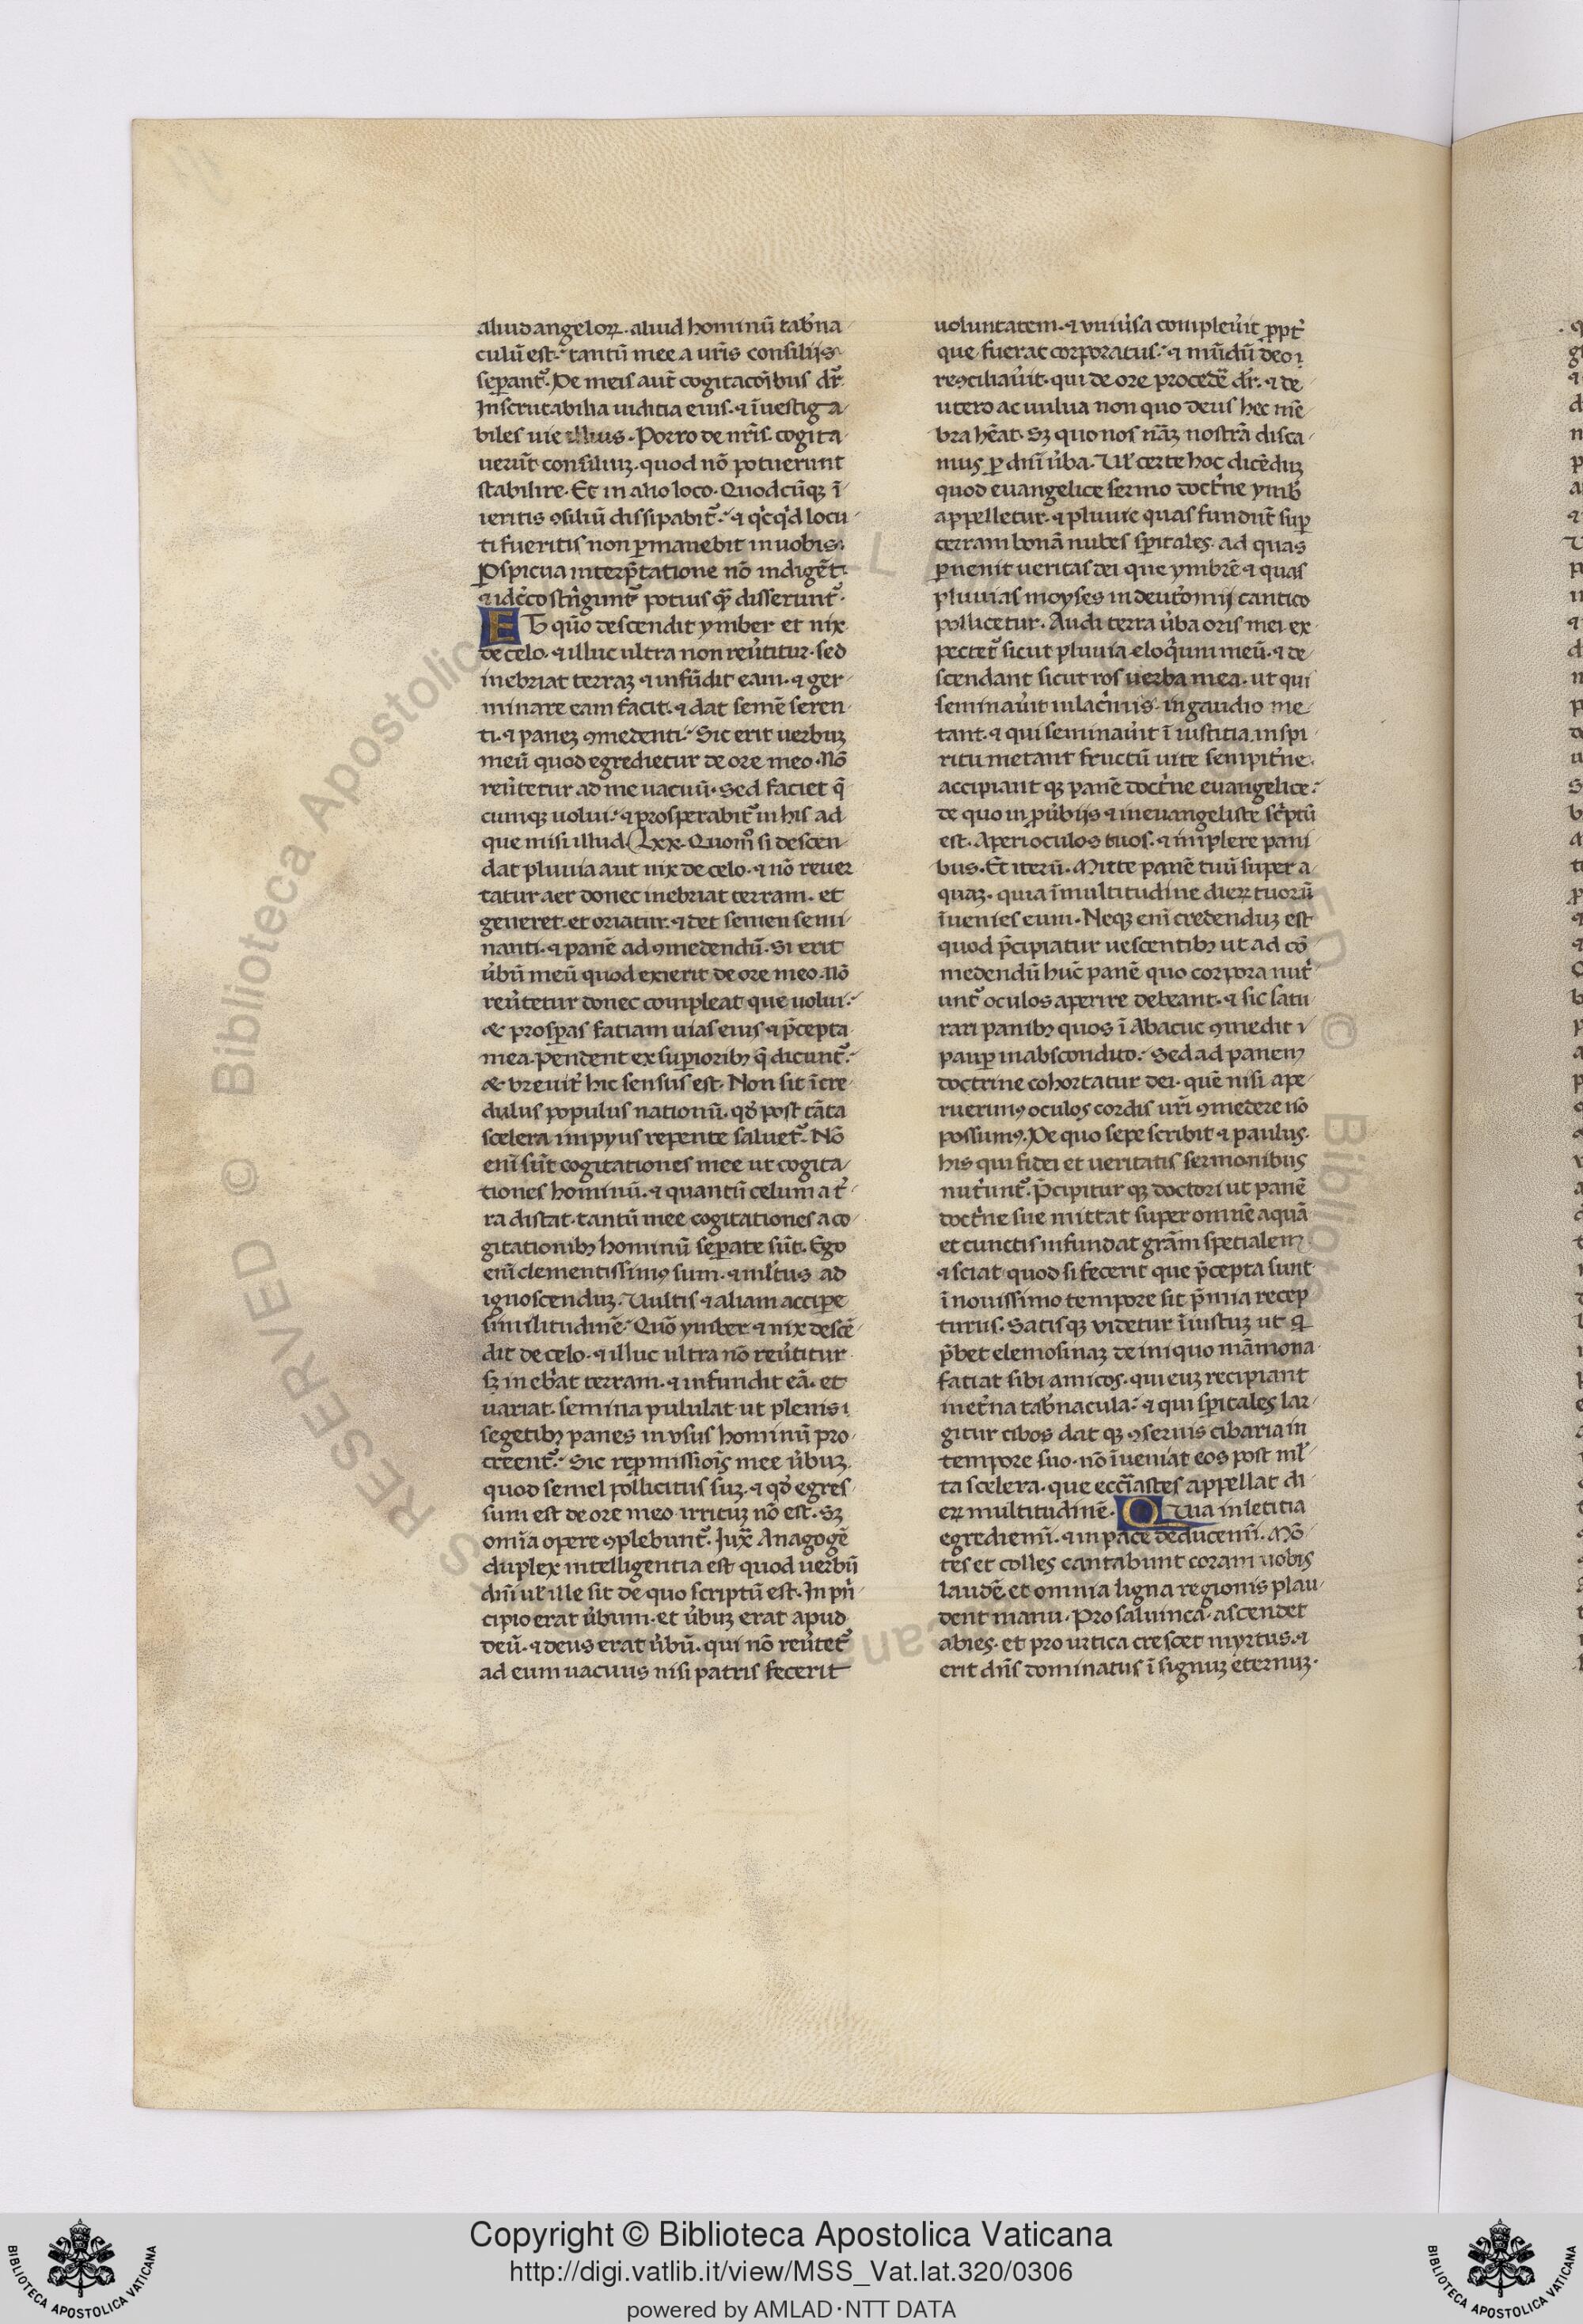 aliud angeloꝝ. aliud hominū tab̾na
culū est: tantū mee a ur̄is consilijs
sep̱ant᷑. De meis aut̄ cogitacōibus dr̄.
Inscrutabilia iuditia eius. ⁊ īuestiga
biles uie illius. Porro de nr̄is. cogita
uerūt consiliuꝫ. quod nō potuerunt
stabilire. Et in alio loco. Quodcūqꝫ ī
ieritis ꝯsiliū dissipabit᷑: ⁊ qͥcqͥd locu
ti fueritis non ꝑmanebit in uobis:
ꝑspicua interp̄tatione nō indigēt:
⁊ idc̄co stn̄gunt᷑ potius qꝫ disserunt᷑.
ET quō descendit ymber et nix
de celo. ⁊ illuc ultra non reu̾titur. sed
inebriat terraꝫ ⁊ infūdit eam. ⁊ ger
minare eam facit. ⁊ dat semē seren
ti. ⁊ paneꝫ ꝯmedenti: Sic erit uerbuꝫ
meū quod egredietur de ore meo. Nō
reu̾tetur ad me uacuū. Sed faciet q̄
cumqꝫ uolui: ⁊ prosperabit᷑ in his ad
que misi illud (Lxx. Quom̊ si descen
dat pluuia aut nix de celo. ⁊ nō reuer
tatur aer donec inebriat terram. et
generet. et oriatur. ⁊ det semen semi
nanti. ⁊ panē ad ꝯmedendū. Si erit
u̾bū meū quod exierit de ore meo. Nō
reu̾tetur donec compleat que uolui:
& prosꝑas fatiam uias eius ⁊ p̄cepta
mea. Pendent ex suꝑioribꝫ q̄ dicunt᷑:
& breuit̾ hic sensus est. Non sit īcre
dulus populus nationū. qđ post tāta
scelera impyus repente saluet᷑. Nō
enī sūt cogitationes mee ut cogita
tiones hominū. ⁊ quantū celum a t̾
ra distat. tantū mee cogitationes a co
gitationibꝫ hominū seꝑate sūt. Ego
enī clementissimꝯ sum. ⁊ ml̾tus ad
ignoscenduꝫ. Uultis ⁊ aliam acciꝑe
similitudinē: Quō ymber ⁊ nix descē
dit de celo. ⁊ illuc ultra nō reu̾titur
sꝫ ineb̾at terram. ⁊ infundit eā. et
uariat. semina pululat ut plenis
segetibꝫ panes in usus hominū pro
creent᷑: Sic reꝑmissiōis mee u̾buꝫ.
quod semel pollicitus suꝫ. ⁊ qđ egres
sum est de ore meo irrituꝫ nō est. Sꝫ
om̄ia opere ꝯplebunt᷑. Juxͣ Anagogē
duplex intelligentia est quod uerbū
dn̄i ul̾ ille sit de quo scriptū est. In pn̄
cipio erat u̾bum. et u̾buꝫ erat apud
deū. ⁊ deus erat u̾bū. qui nō reu̾tet᷑
ad eum uacuus nisi patris fecerit
uoluntatem. ⁊ uniu̾sa compleu̾it ꝓpt̾
que fuerat corporatus: ⁊ mūdū deo
reꝯciliau̾it. qui de ore procedē̾ dr̄. ⁊ de
utero ac uulua non quo deus hec mē
bra hēat. Sꝫ quo nos nāꝫ nostrā disca
mus ꝑ dn̄i u̾ba. Ul̾ certe hoc dicēduꝫ
quod euangelice sermo doct̾ne ymb̾
appelletur. ⁊ pluuie quas fundūt suꝑ
terram bonā nubes spitales. ad quas
ꝑuenit ueritas dei que ymbrē ⁊ quas
pluuias moyses in deut̾omij cantico
pollicetur. Audi terra u̾ba oris mei ex
pectet᷑ sicut pluuia eloq̄um meū. ⁊ de
scendant sicut ros uerba mea. ut qui
seminau̾it in lacͥmis. in gaudio me
tant. ⁊ qui seminau̾it ī iustitia. in spi
ritu metant fructū uite sempit̾ne.
accipiant qꝫ panē doct̾ne euangelice:
de quo in ꝓu̾bijs ⁊ in euangeliste scͥptū
est. Aperi oculos tuos. ⁊ implere pani
bus. Et iterū. Mitte panē tuū super a
quaꝫ. quia ī multitudine dieꝝ tuorū
īuenies eum. Neqꝫ enī credenduꝫ est
quod p̄cipiatur uescentibꝫ ut ad co
medendū hūc panē quo corpora nut̾
unt᷑ oculos aperire debeant. ⁊ sic satu
rari panibꝫ quos ī Abacuc ꝯmedit
pauꝑ in abscondito: Sed ad panem
doctrine cohortatur dei. quē nisi ape
ruerimꝯ oculos cordis ur̄i ꝯmedere nō
possumꝯ. De quo sepe scribit ⁊ paulus.
his qui fidei et ueritatis sermonibus
nut̾iunt᷑. P̄cipitur qꝫ doctori ut panē
doct̾ne sue mittat super omnē aquā
et cunctis infundat grām spetialem
⁊ sciat quod si fecerit que p̄cepta sunt
ī nouissimo tempore sit p̄mia recep
turus. Satisqꝫ uidetur īiustuꝫ ut q̱
p̄bet elemosinaꝫ de iniquo māmona
fatiat sibi amicos. qui euꝫ recipiant
in et̾na tab̾nacula: ⁊ qui spitales lar
gitur cibos dat qꝫ ꝯseruis cibaria in
tempore suo. nō īueniat eos post ml̾
ta scelera. que ecc̄iastes appellat di
eꝝ multitudinē. QUia in letitia
egrediemī. ⁊ in pace deducemī. Mō
tes et colles cantabunt coram uobis
laudē. et omnia ligna regionis plau
dent manu. Pro saliunca. ascendet
abies. et pro urtica crescet myrtus. ⁊
erit dn̄s dominatus ī signuꝫ eternuꝫ.
Copyright © Biblioteca Apostolica Vaticana
http://digi.vatlib.it/view/MSS_Vat.lat.320/0306
powered by AMLAD·NTT DATA
BIBLIOTECA APOSTOLICA VATICANA
BIBLIOTECA APOSTOLICA VATICANA